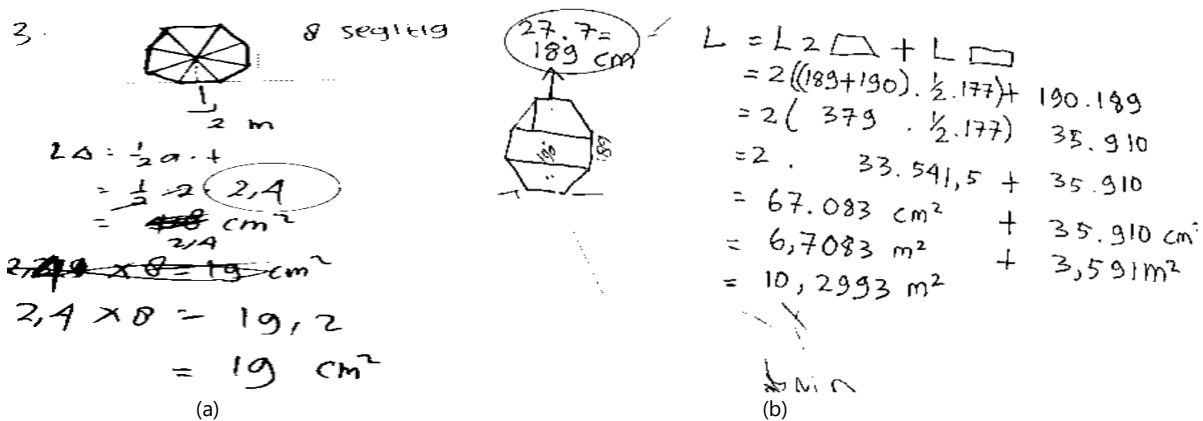 3.
8 segitig
2 m
LΔ = ½ a . t
= ½ . 2 . 2,4
= cm²
2,4
× 8 = 19 cm²
2,4 × 8 = 19,2
= 19 cm²
(a)
27.7=
189 cm
190
189
L = L 2 ⏢ + L ▭
= 2((189+190). ½ .177)+ 190.189
= 2( 379 . ½.177) 35.910
=2 . 33.541,5 + 35.910
= 67.083 cm² + 35.910 cm²
= 6,7083 m² + 3,591m²
= 10,2993 m²
(b)